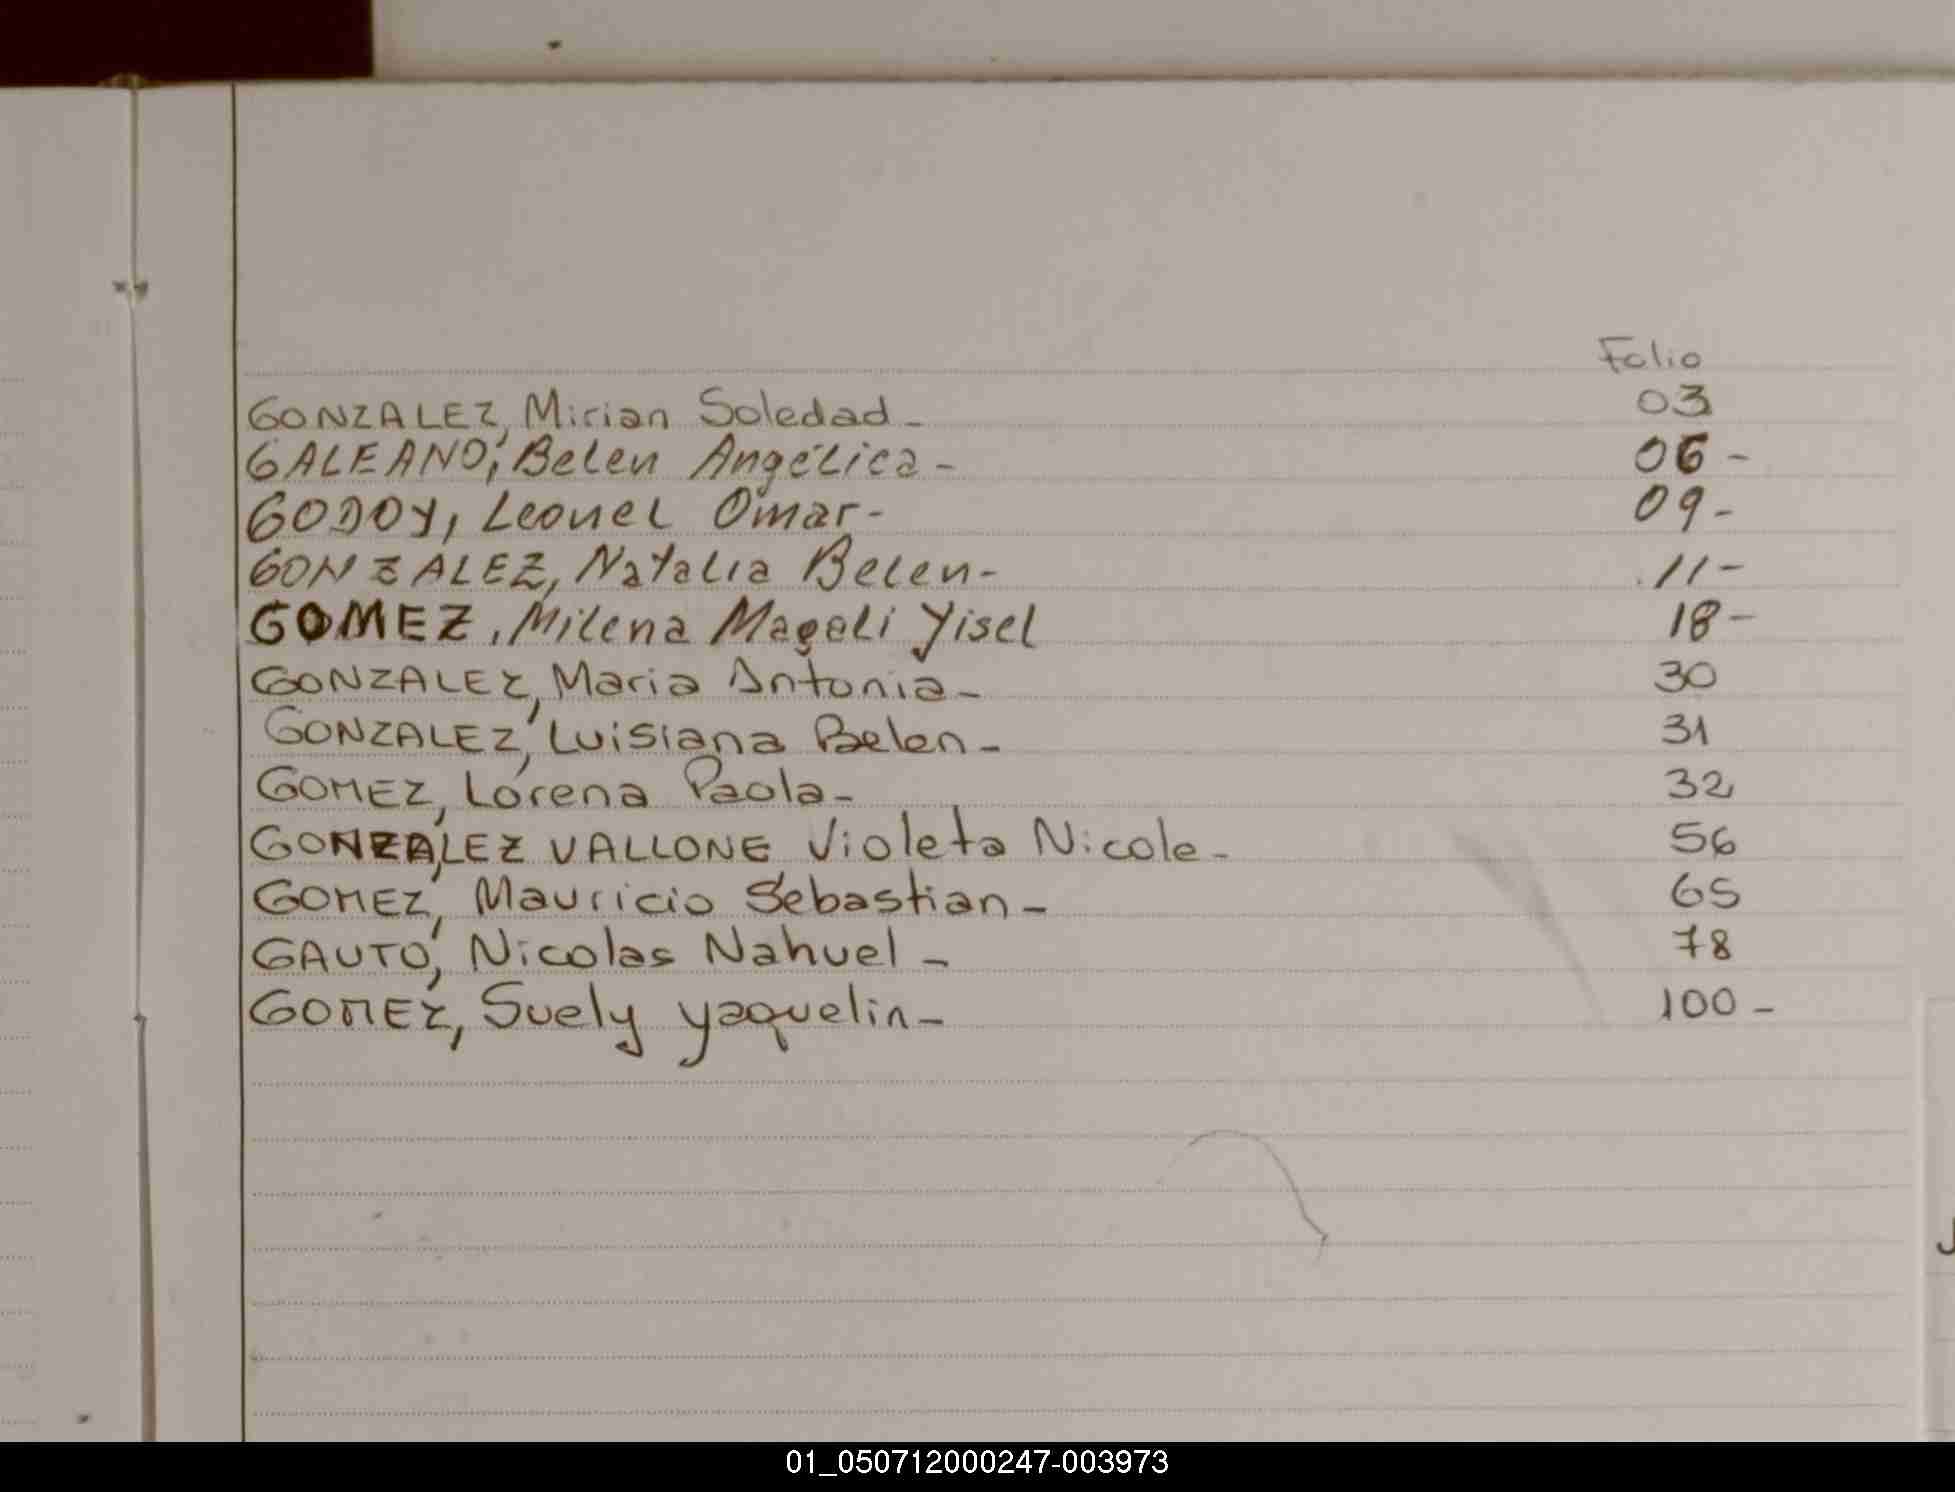 Folio
GONZALEZ, Mirian Soledad - 03
GALEANO, Belen Angélica - 06 -
GODOY, Leonel Omar - 09 -
GONZALEZ, Natalia Belen - 11 -
GOMEZ, Milena Mageli Yisel 18 -
GONZALEZ, Maria Antonia - 30
GONZALEZ, Luisiana Belen - 31
GOMEZ, Lorena Paola - 32
GONZALEZ VALLONE Violeta Nicole - 56
GOMEZ, Mauricio Sebastian - 65
GAUTO, Nicolas Nahuel - 78
GOMEZ, Suely yaquelin - 100 -
01_050712000247-003973